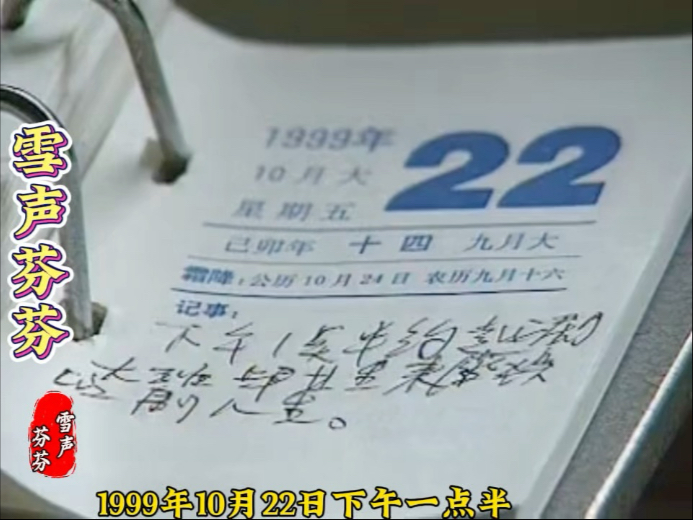 雪声芬芬
1999年
10月大
星期五
22
己卯年 十四 九月大
霜降:公历10月24日 农历九月十六
记事:
下午1点半约
雪声
芬芬
1999年10月22日下午一点半